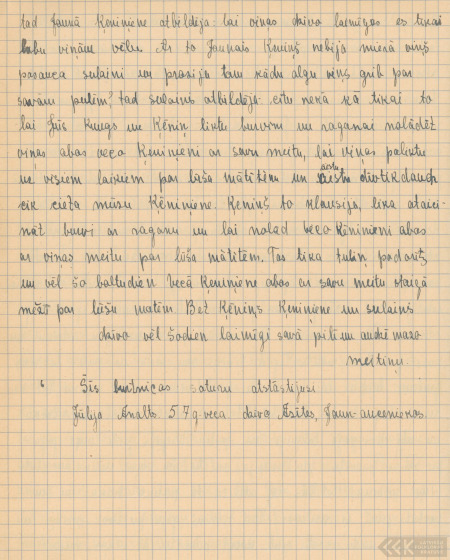 tad Jaunā Ķeniniene atbildēja: lai viņas dzīvo laimīgas es tikai
labu viņām vēlu. Ar to Jaunais Ķeniņš nebija mierā viņš
pasauca sulaini un prasīja tam kādu algu viņš grib par
savām pūlēm? tad sulainis atbildēja: citu nekā kā tikai to
lai Jūs Kungs un Ķēniņ liktu burvim un raganai nolādēt
viņas abas veco Ķeninieni ar savu meitu, lai viņas paliktu
uz visiem laikiem par lāša mātītēm un divtikdauch
cik cieta mūsu Ķēniniene. Ķeniņš to klausīja, lika ataici-
nāt burvi ar raganu un lai nolād veco Ķēninieni abas
ar viņas meitu par lūša mātitēm. Tas tika tulin padarīts,
un vēl šo baltudien Vecā Ķeniniene abas ar savu meitu staigā
mēžt par lūšu matēm. Bet Ķēniņš Ķeniniene un sulainis
dzīvo vēl šodien laimīgi savā pilī un audzē mazo
meitiņu.
Šīs saturu atstāstījusi
Jūlija Analts 57 g. veca dzīvo Asītes, Jaun-